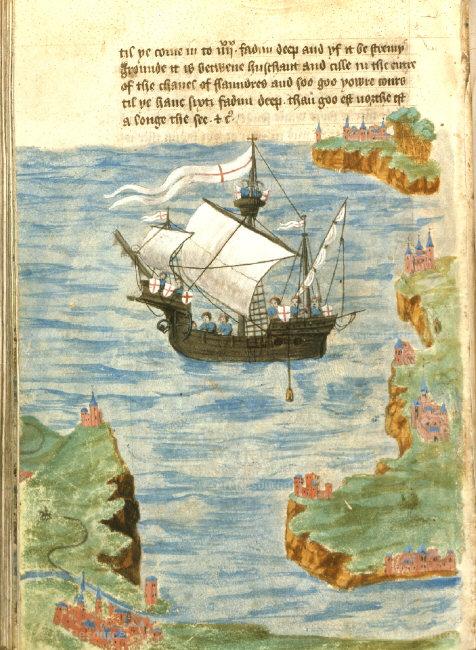 til ye come in to iiijxx. fadim deep and yf it be stremy
grounde it is betwene huschant and cille in the entre
of the chanel of flaundres and soo goo yowre cours
til ye haue sixti fadim deep. than goo est northe est
a longe the see. + c̃.